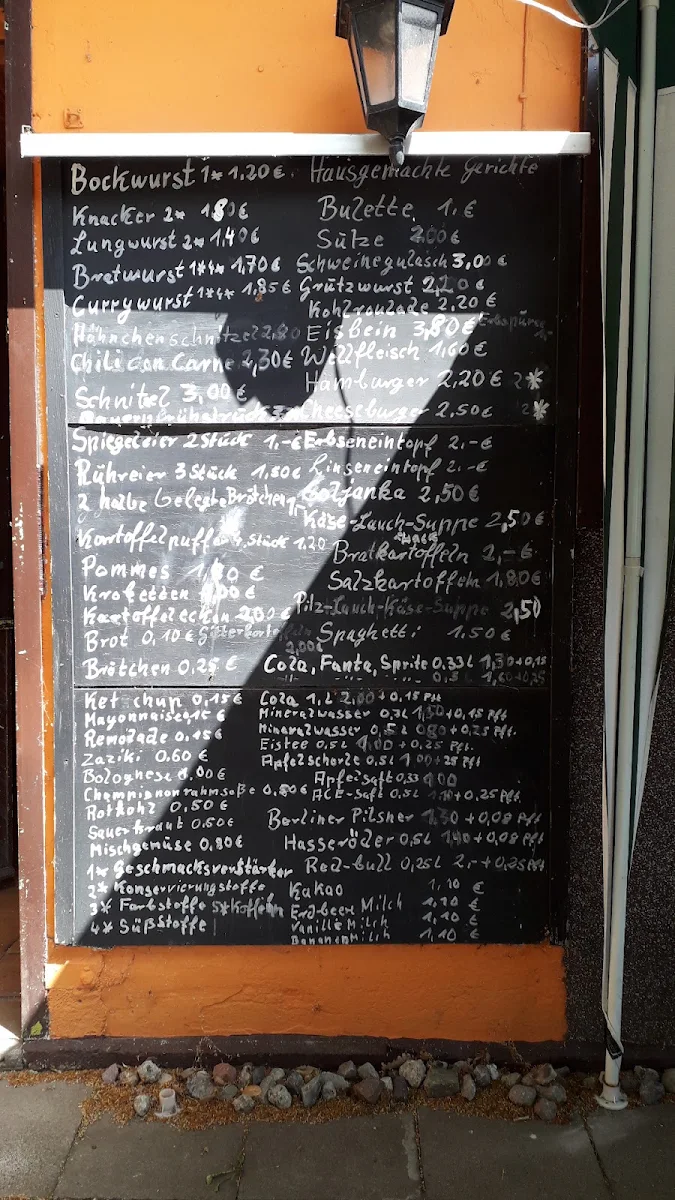 Bockwurst 1* 1,20 €
Knacker 2* 1,80 €
Lungwurst 2* 1,40 €
Bratwurst 1*4* 1,70 €
Currywurst 1*4* 1,85 €
Hähnchenschnitzel 2,80
Chili con Carne 2,30 €
Schnitzel 3,00 €
Bauernfrühstück
Spiegeleier 2 Stück 1,-€
Rühreier 3 Stück 1,50 €
2 halbe belegte Brötchen
Kartoffelpuffer Stück 1,20
Pommes €
Kroketten €
Kartoffelecken 2,00 €
Brot 0,10 €
2,00 €
Brötchen 0,25 €
Ketchup 0,15 €
Mayonnaise €
Remolade 0,15 €
Zaziki 0,60 €
Bolognese €
Champignonrahmsoße 0,80 €
Rotkohl 0,50 €
Sauerkraut 0,50 €
Mischgemüse 0,80 €
1* Geschmacksverstärker
2* Konservierungstoffe
3* Farbstoffe
4* Süßstoffe
Hausgemachte Gerichte
Bulette 1.€
Sülze 2,00 €
Schweinegulasch 3,00 €
Grützwurst 2,20 €
Kohlroulade 2,20 €
Eisbein 3,80 € Erbspüree
Wellfleisch 1,60 €
Hamburger 2,20 € 2*
Cheeseburger 2,50 € 2*
Erbseneintopf 2.-€
Linseneintopf 2.-€
Soljanka 2,50 €
Käse-Lauch-Suppe 2,50 €
Bratkartoffeln 2,-€
Salzkartoffeln 1,80 €
Pilz-Lauch-Käse-Suppe 2,50
Spaghetti 1,50 €
Cola, Fanta, Sprite 0,33 l 1,30+0,15
Cola 1,l 2,00 + 0,15 Pft
Mineralwasser 0,3l +0,15 Pft.
Mineralwasser 0,5l +0,25 Pft.
Eistee 0,5l 1,00 + 0,25 Pft.
Apfelschorle 0,5l
Apfelsaft 0,33
ACE-Saft 0,5l +0,25 Pft.
Berliner Pilsner +0,08 Pft
Hasseröder 0,5l +0,08 Pft
Red-bull 0,25l 2.-+0,25 Pft
Kakao 1,10 €
Erdbeer Milch 1,10 €
Vanille Milch 1,10 €
Bananen Milch 1,10 €